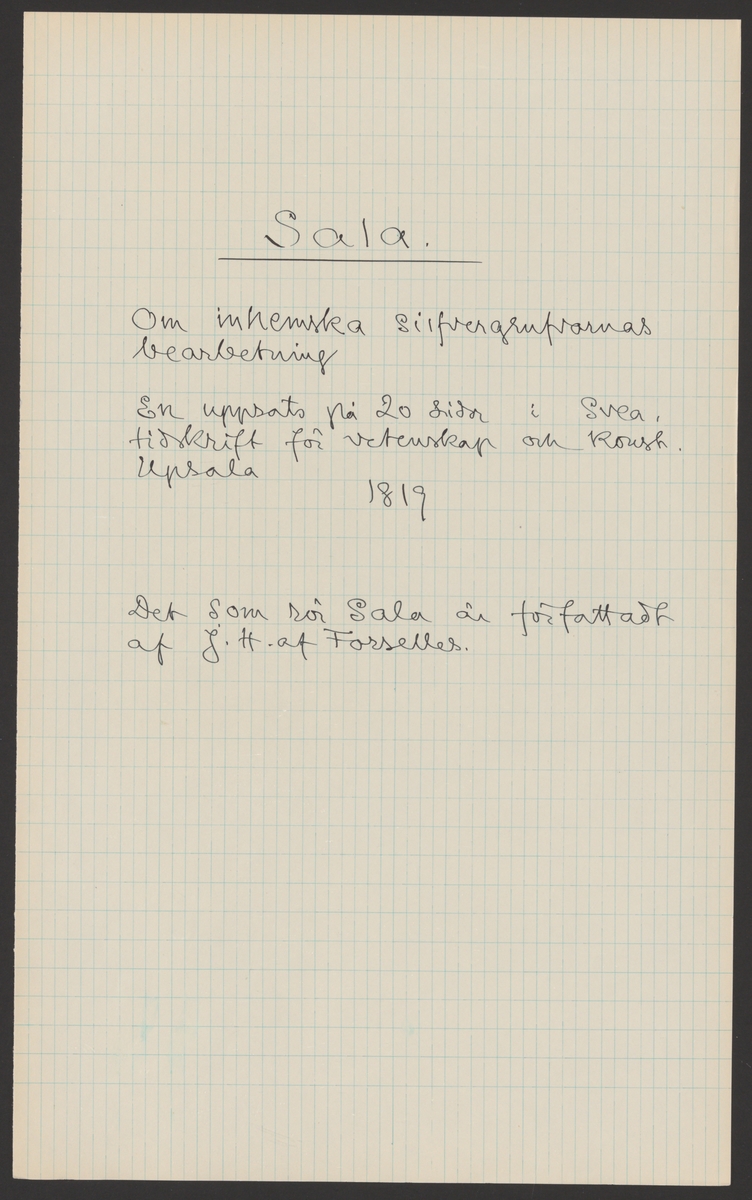 Sala.
Om inhemska silfvergrufvornas
bearbetning
En uppsats på 20 sidor i Svea,
tidskrift för vetenskap och konst.
Upsala
1819
Det som rör Sala är författadt
af J. H. af Forselles.